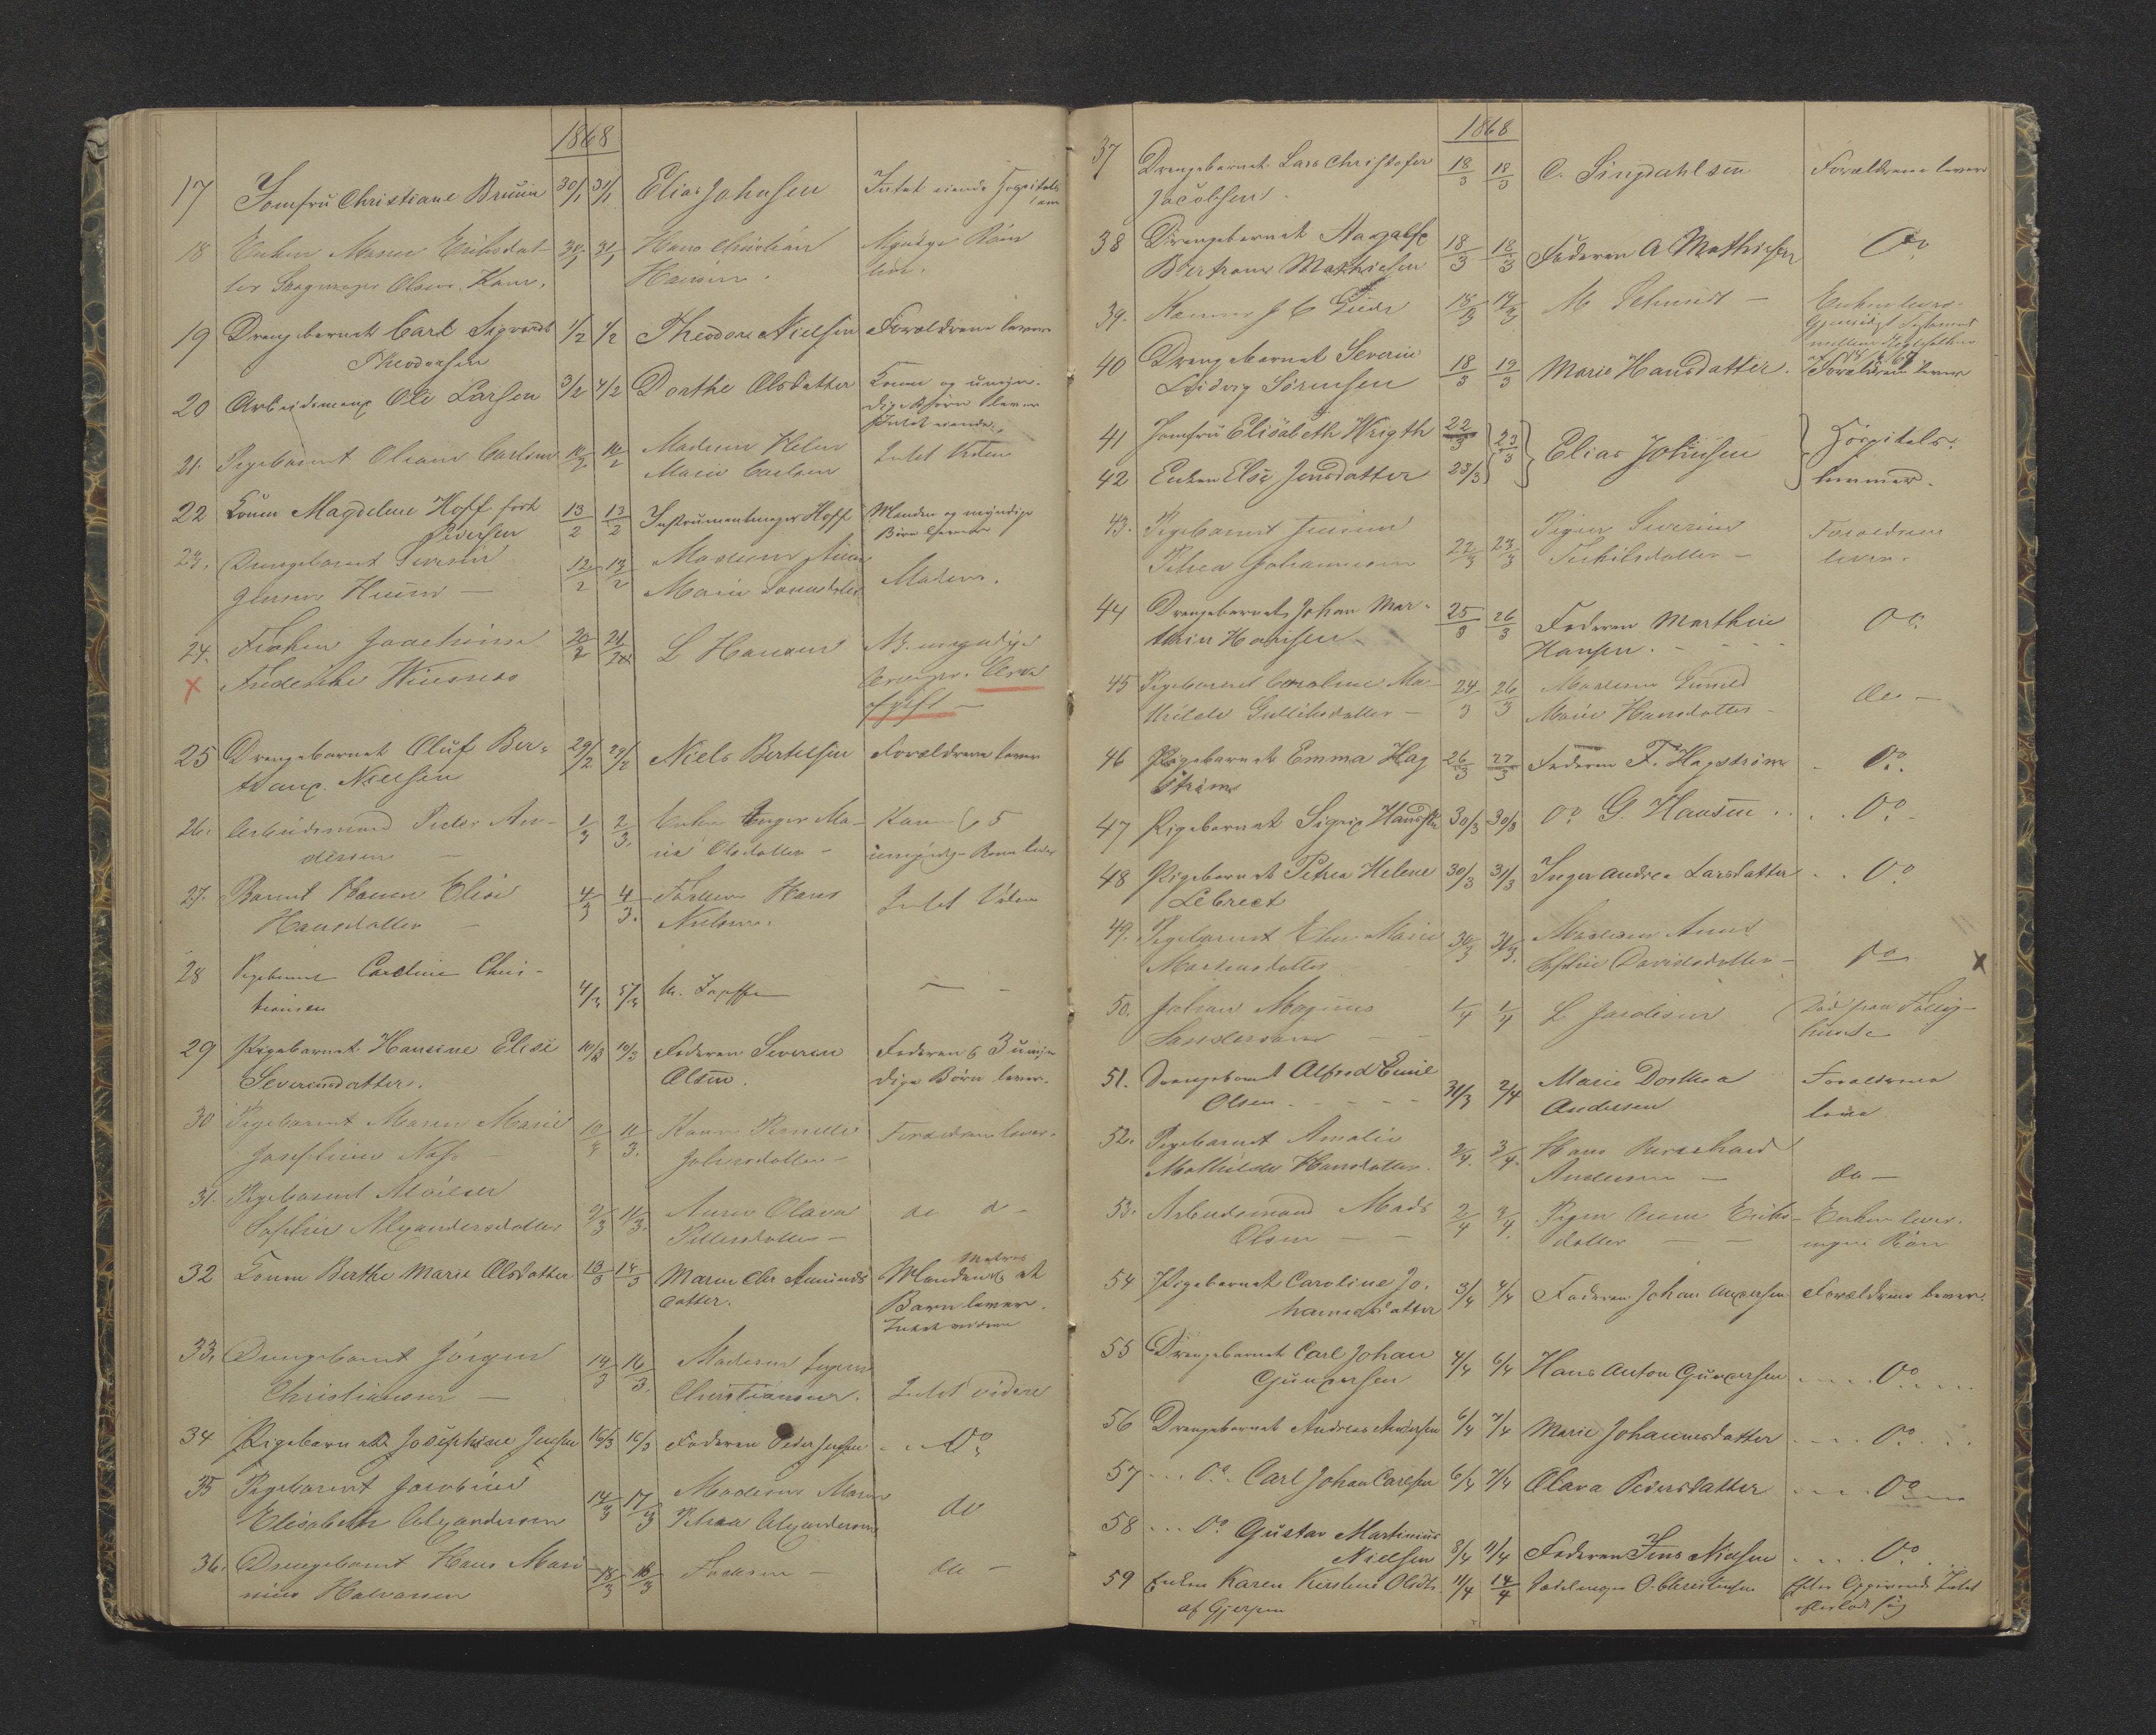 1868
17 Jomfru Christiane Bruun 30/1 31/1 Elias Johnsen Intet eiende Hospitals
lem
18 Enken Maren Eriksdat- 30/1 31/1 Hans Christian
ter Olsens Kone. Hansen.
19 Drengebarnet Carl Sigvardt 1/2 1/2 Theodor Nielsen Forældrene lever
Theodorsen
20 Arbeidsmand Ole Larsen 3/2 4/2 Dorthe Olsdatter Konen og umyn-
dige Børn lever
Intet eiende.
21. Pigebarnet Oleane Carlsen 10/2 10/2 Moderen Helene Intet Viden
Marie Carlsen
22 Konen Magdelene Hoff født 13/2 13/2 Instrumentmager Hoff Manden og myndige
Iversen Børn lever
23. Drengebarnet Severin 12/2 13/2 Moderen Anne Moderen.
Jensen
Marie
24. Frøken Joachime 20/2 21/2 L Hansen
Frederikke
25 Drengebarnet Oluf Ber- 29/2 29/2 Niels Bertelsen Forældrene lever
trand. Nielsen
26. Arbeidsmand Peder An- 1/3 2/3. Enken Inger Ma- Kone & 5
dersen rie Olsdatter - umyndige Børn lever
27. Barnet Elise 4/3 4/3. Faderen Hans Intet Viden
Hansdatter Nielsen.
28 Pigebarnet Caroline Chris- 4/3 5/3
tiansen
29 Pigebarnet Hansine Elise 10/3 10/3 Faderen Severin Faderen & 3 umyn
Severinsdatter. Olsen. dige Børn lever.
30 Pigebarnet Maren Marie 10/3 11/3. Konen Pernille Forældrene lever.
Josephine Johnsdatter -
31. Pigebarnet
Sophie Alexandersdatter 9/3 11/3. Anne Olava do do -
Pettersdatter -
32 Konen Berthe Marie Olsdatter 13/3 14/3 Maren Amunds Manden & et
datter. Barn lever.
Intet videre
33. Drengebarnet Jørgen 14/3 16/3. Moderen
Christiansen - Christiansen. Intet videre
34 Pigebarnet Josephine Jensen 16/3 16/3 Faderen Peder Jensen Do
35 Pigebarnet Jacobine 14/3 17/3 Moderen Maren do
Elisabeth Alexandersen Petrea Alexandersen
36. Drengebarnet Hans Mari- 18/3 18/3 Faderen - do -
nius Halvorsen
1868
37 Drengebarnet Lars Christofer 18/3 18/3 C. Singdahlsen Forældrene lever
Jacobsen.
38 Drengebarnet Haagalf 18/3 18/3 Faderen A Mathiesen Do
Bertrand Mathiesen
39. J C 18/3 19/3 M Schmidt - Enken lever-
Gjensidigt Testament
mellem Ægtefolkene
40 Drengebarnet Severin 18/3 19/3 Marie Hansdatter. Forældrene lever
Ludvig Sørensen
41 Jomfru Elisabeth Wrigth 22/3 23/3 Elias Johnsen Hospitals-
42 Enken Else Jensdatter 23/3 lemmer.
43. Pigebarnet 22/3 23/3 Pigen Severine Forældrene
Petrea Johannesen Terkilsdatter - lever.
44 Drengebarnet Johan Mar- 25/3 26/3 Faderen Marthin Do
thin Hansen Hansen.
45 Pigebarnet Caroline Ma- 24/3 26/3 Moderen Gunild do -
thilde Gulliksdatter - Marie Hansdatter -
46 Pigebarnet Emma Hag 26/3 27/3 Faderen F. Hagstrøm - Do.
strøm
47 Pigebarnet Sigrid Hansen 30/3 30/3 Do G. Hansen . . . . Do -
48 Pigebarnet Petrea Helene 30/3 31/3 Inger Andrea Larsdatter . . Do
Lebrect
49. Pigebarnet Elen Marie 30/3 31/3. Moderen Anne Do
Mortensdatter Sophie Davidsdatter - x
50. Johan Magnus 1/4 1/4 L Jacobsen Død paa Fattig-
Sandersen huset
51. Drengebarnet Alfred Emil 31/3 2/4 Marie Dorthea Forældrene
Olsen - - - - - Andersen lever
52. Pigebarnet Amalie 2/4. 3/4. Hans
Mathilde Hansdatter. Andersen - do -
53. Arbeidsmand Mads 2/4 3/4. Pigen Anne Eriks- Enken lever.
Olsen - - datter - - ingen Børn
54 Pigebarnet Caroline Jo- 3/4 4/4 Faderen Johan Andersen Forældrene lever.
hannesdatter
55 Drengebarnet Carl Johan 4/4 6/4 Hans Anton Gundersen . . . . Do . . . .
Gundersen
56 Drengebarnet Andreas Andersen 6/4 7/4 Marie Johannesdatter . . . . Do . . .
57 . . . Do Carl Johan Carlsen 6/4 7/4 Olava Pedersdatter . . . . Do
58 . . . Do Gustav Martinius
Nielsen 8/4 11/4 Faderen Jens Nielsen . . . . Do
59 Enken Karen Kirstine Olsdtr. 11/4 14/4 Sadelmager O. Christensen Efter Opgivende Intet
af Gjerpen efterladt sig